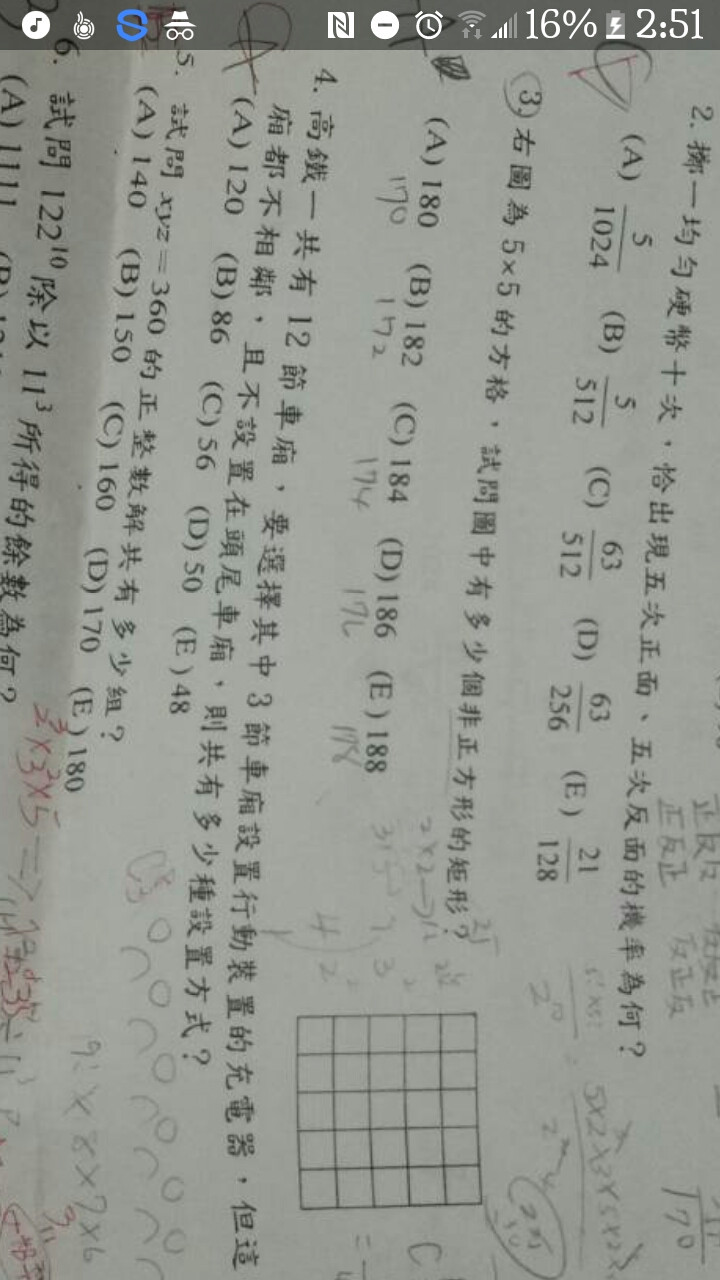 16% 2:51
2. 擲一均勻硬幣十次，恰出現五次正面、五次反面的機率為何？
(A) 5/1024 (B) 5/512 (C) 63/512 (D) 63/256 (E) 21/128
3. 右圖為 5×5 的方格，試問圖中有多少個非正方形的矩形？
(A) 180 (B) 182 (C) 184 (D) 186 (E) 188
170 172 174 176 178
4. 高鐵一共有 12 節車廂，要選擇其中 3 節車廂設置行動裝置的充電器，但這
廂都不相鄰，且不設置在頭尾車廂，則共有多少種設置方式？
(A) 120 (B) 86 (C) 56 (D) 50 (E) 48
5. 試問 xyz = 360 的正整數解共有多少組？
(A) 140 (B) 150 (C) 160 (D) 170 (E) 180
2³×3²×5
9!×8×7×6
6. 試問 122¹⁰ 除以 11³ 所得的餘數為何？
(A) 1111